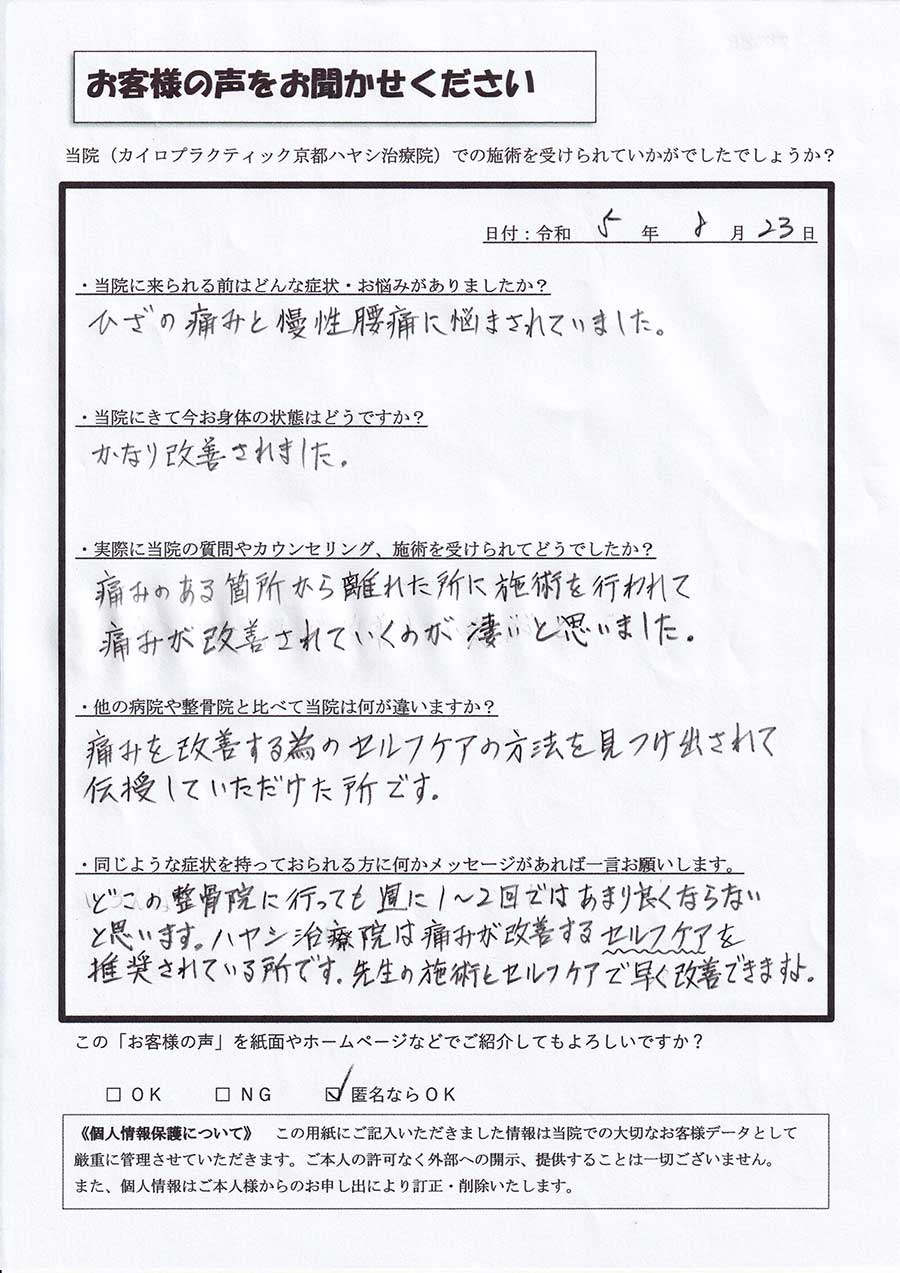 お客様の声をお聞かせください
当院（カイロプラクティック京都ハヤシ治療院）での施術を受けられていかがでしたでしょうか？
日付：令和 5 年 8 月 23 日
・当院に来られる前はどんな症状・お悩みがありましたか？
ひざの痛みと慢性腰痛に悩まされていました。
・当院にきて今お身体の状態はどうですか？
かなり改善されました。
・実際に当院の質問やカウンセリング、施術を受けられてどうでしたか？
痛みのある箇所から離れた所に施術を行われて
痛みが改善されていくのが凄いと思いました。
・他の病院や整骨院と比べて当院は何が違いますか？
痛みを改善する為のセルフケアの方法を見つけ出されて
伝授していただけた所です。
・同じような症状を持っておられる方に何かメッセージがあれば一言お願いします。
どこの整骨院に行っても週に1～2回ではあまり良くならない
と思います。ハヤシ治療院は痛みが改善するセルフケアを
推奨されている所です。先生の施術とセルフケアで早く改善できますよ。
この「お客様の声」を紙面やホームページなどでご紹介してもよろしいですか？
□ ＯＫ □ ＮＧ ☑ 匿名ならＯＫ
《個人情報保護について》 この用紙にご記入いただきました情報は当院での大切なお客様データとして
厳重に管理させていただきます。ご本人の許可なく外部への開示、提供することは一切ございません。
また、個人情報はご本人様からのお申し出により訂正・削除いたします。